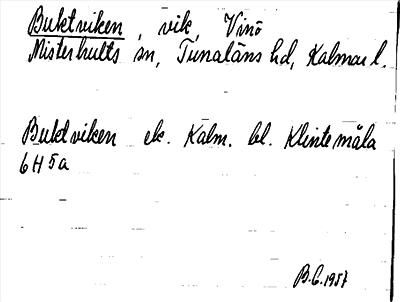 Buktviken, vik, Vinö
Misterhults sn, Tunaläns hd, Kalmar l.
Buktviken ek. Kalm. bl. Klintemåla
6H5a
B.G. 1957